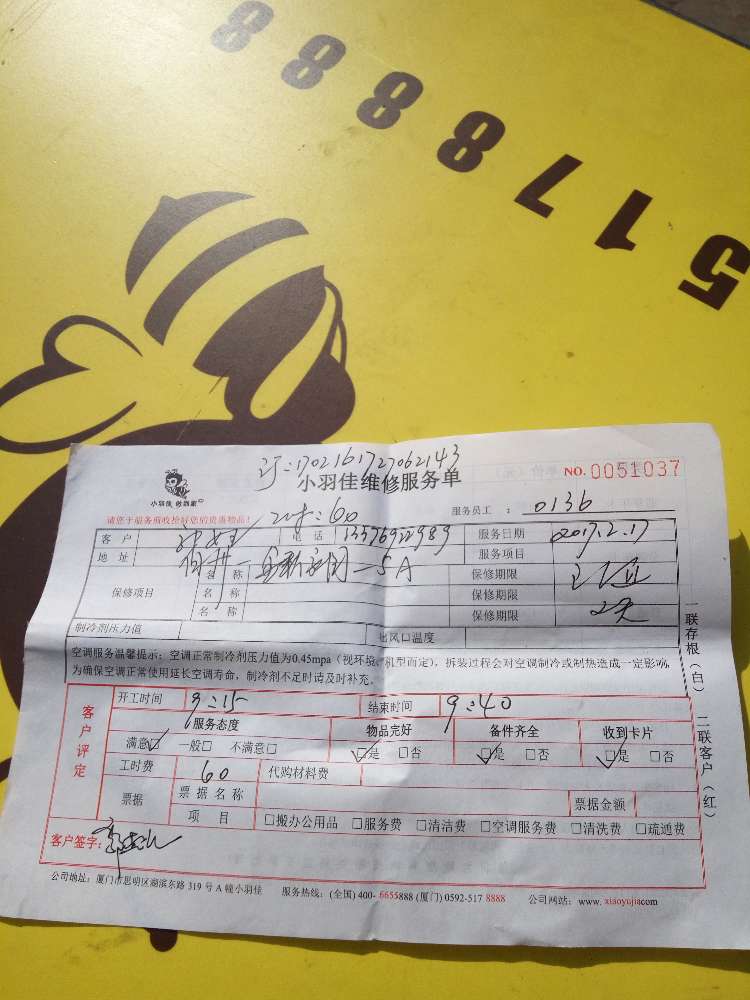 5178888
订:1702161727062143
小羽佳维修服务单
NO. 0051037
小羽佳 做到家
请您于服务前收拾好您的贵重物品!
服务员工 : 0136
60
客户
电话 13576922989
服务日期 2017.2.17
地址
服务项目
保修项目
名称
保修期限
名称
保修期限
名称
保修期限 2天
制冷剂压力值
出风口温度
空调服务温馨提示:空调正常制冷剂压力值为0.45mpa(视环境、机型而定),拆装过程会对空调制冷或制热造成一定影响,
为确保空调正常使用延长空调寿命,制冷剂不足时请及时补充。
一联存根(白) 二联客户(红)
客户评定
开工时间 9:15
结束时间 9:40
服务态度 物品完好 备件齐全 收到卡片
满意☑ 一般□ 不满意□ ☑是 □否 ☑是 □否 ☑是 □否
工时费 60 代购材料费
票据 票据名称 票据金额
项目 □搬办公用品 □服务费 □清洁费 □空调服务费 □清洗费 □疏通费
客户签字:
公司地址:厦门市思明区湖滨东路 319 号 A 幢小羽佳 服务热线:(全国) 400- 6655888 (厦门) 0592-517 8888 公司网站:www. xiaoyujiacom